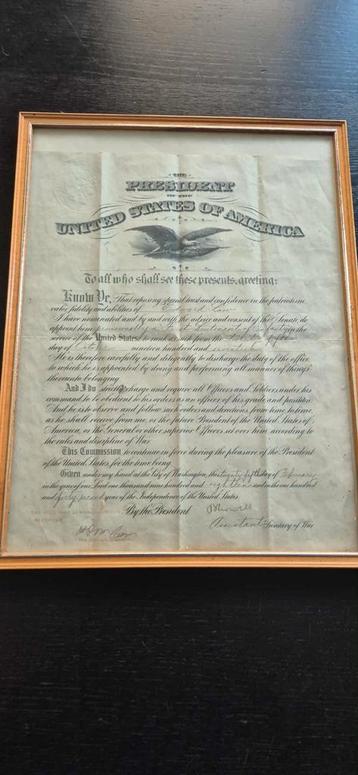 THE
PRESIDENT
OF THE
UNITED STATES OF AMERICA
To all who shall see these presents, greeting:
Know Ye, That reposing special trust and confidence in the patriotism
valor, fidelity and abilities of Edward
I have nominated and by and with the advice and consent of the Senate, do
appoint him of Infantry in the
service of the United States: to rank as such from the
day of nineteen hundred and
He is therefore carefully and diligently to discharge the duty of the office
to which he is appointed by doing and performing all manner of things
thereunto belonging.
And I do strictly charge and require all Officers and Soldiers under his
command to be obedient to his orders as an officer of his grade and position
And he is to observe and follow such orders and directions, from time to time,
as he shall receive from me, or the future President of the United States of
America, or the General or other superior Officers set over him, according to
the rules and discipline of War.
This Commission to continue in force during the pleasure of the President
of the United States, for the time being.
Given under my hand at the City of Washington, this day of
in the year of our Lord one thousand nine hundred and eighteen and in the one hundred
and forty second year of the Independence of the United States.
By the President
Assistant Secretary of War